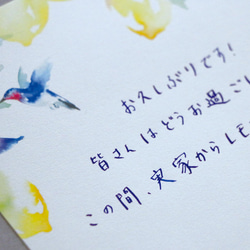 お久しぶりです!
皆さんはどうお過ご
この間、実家からレモ